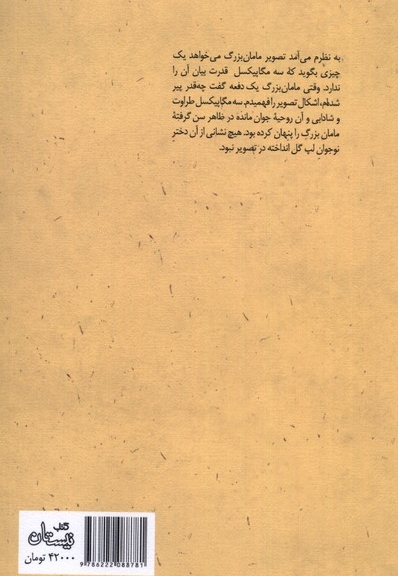 به نظرم می‌آمد تصویر مامان‌بزرگ می‌خواهد یک
چیزی بگوید که سه مگاپیکسل قدرت بیان آن را
ندارد. وقتی مامان‌بزرگ یک دفعه گفت چه‌قدر پیر
شده‌ام، اشکال تصویر را فهمیدم. سه مگاپیکسل طراوت
و شادابی و آن روحیهٔ جوان مانده در ظاهر سن گرفتهٔ
مامان بزرگ را پنهان کرده بود. هیچ نشانی از آن دخترِ
نوجوانِ لپ گل انداخته در تصویر نبود.
کتاب
نیستان
۴۲۰۰۰ تومان
9 786222 088781